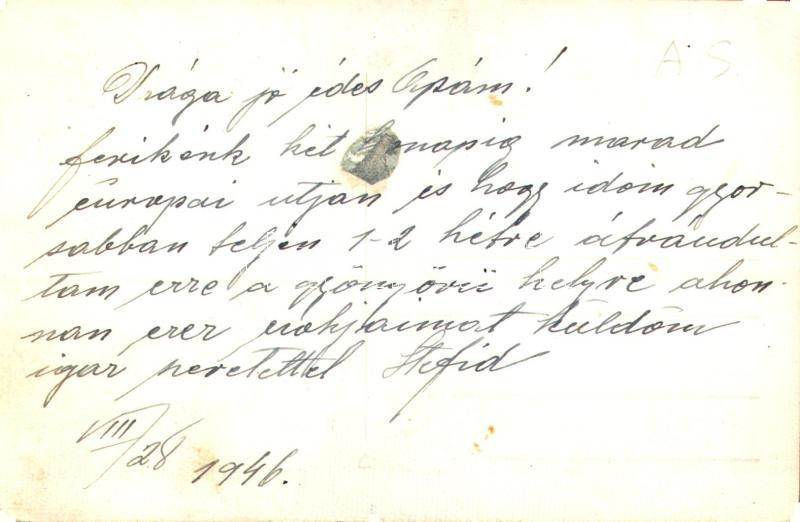 A. S.
Drága jó édes Apám!
ferikénk hét hónapig marad
európai utján és hogy időm gyor-
sabban teljen 1-2 hétre átrándul-
tam erre a gyönyörű helyre ahon-
nan ezer csókjaimat küldöm
igaz szeretettel Stefid
VIII/28 1946.